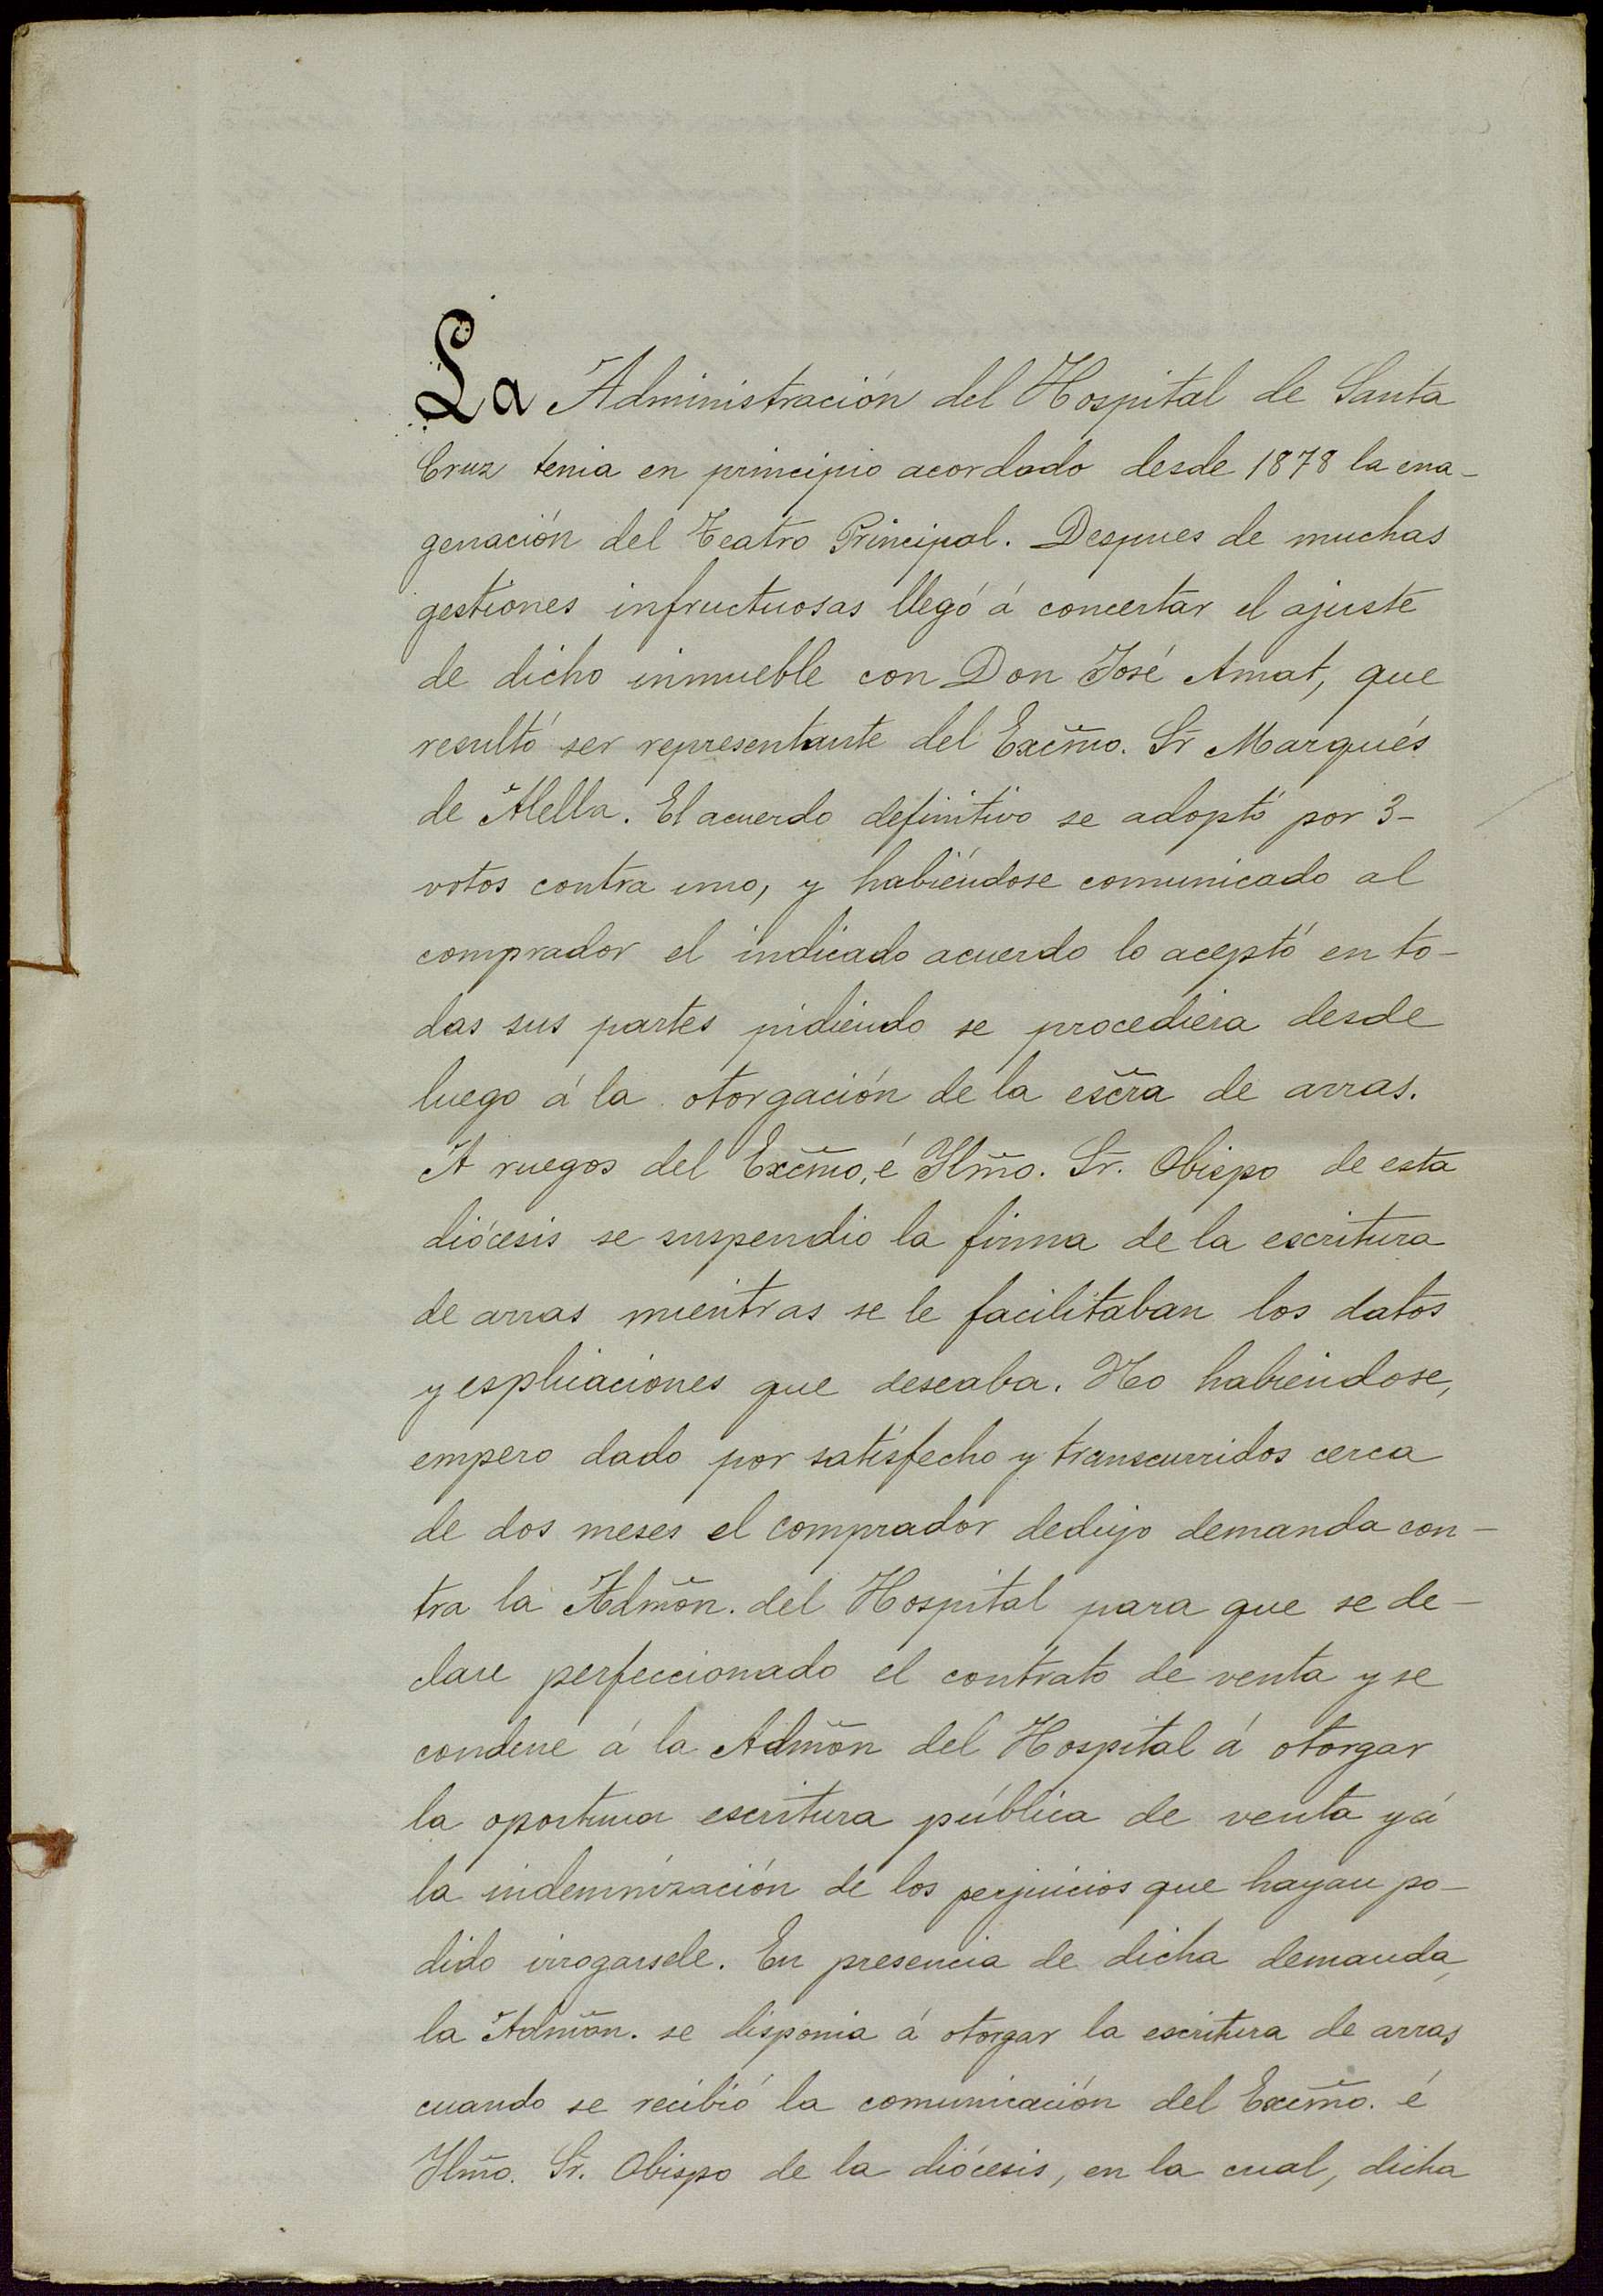 La Administración del Hospital de Santa
Cruz tenia en principio acordado desde 1878 la ena-
genación del Teatro Principal. Despues de muchas
gestiones infructuosas llegó á concertar el ajuste
de dicho inmueble con Don José Amat, que
resultó ser representante del Excm̃o. Sr̃ Marqués
de Alella. El acuerdo definitivo se adoptó por 3-
votos contra uno, y habiéndose comunicado al
comprador el indicado acuerdo lo aceptó en to-
das sus partes pidiendo se procediera desde
luego á la otorgación de la escr̃a de arras.
A ruegos del Excm̃o, é Ylm̃o. Sr̃. Obispo de esta
diócesis se suspendio la firma de la escritura
de arras mientras se le facilitaban los datos
y esplicaciones que deseaba. No habiendose,
empero dado por satisfecho y transcurridos cerca
de dos meses el comprador dedujo demanda con-
tra la Adm̃on. del Hospital para que se de-
clare perfeccionado el contrato de venta y se
condene á la Adm̃on del Hospital á otorgar
la oportuna escritura pública de venta y á
la indemnización de los perjuicios que hayan po-
dido irrogarsele. En presencia de dicha demanda,
la Adm̃on. se disponia á otorgar la escritura de arras
cuando se recibió la comunicación del Excm̃o. é
Ylm̃o. Sr. Obispo de la diócesis, en la cual, dicha